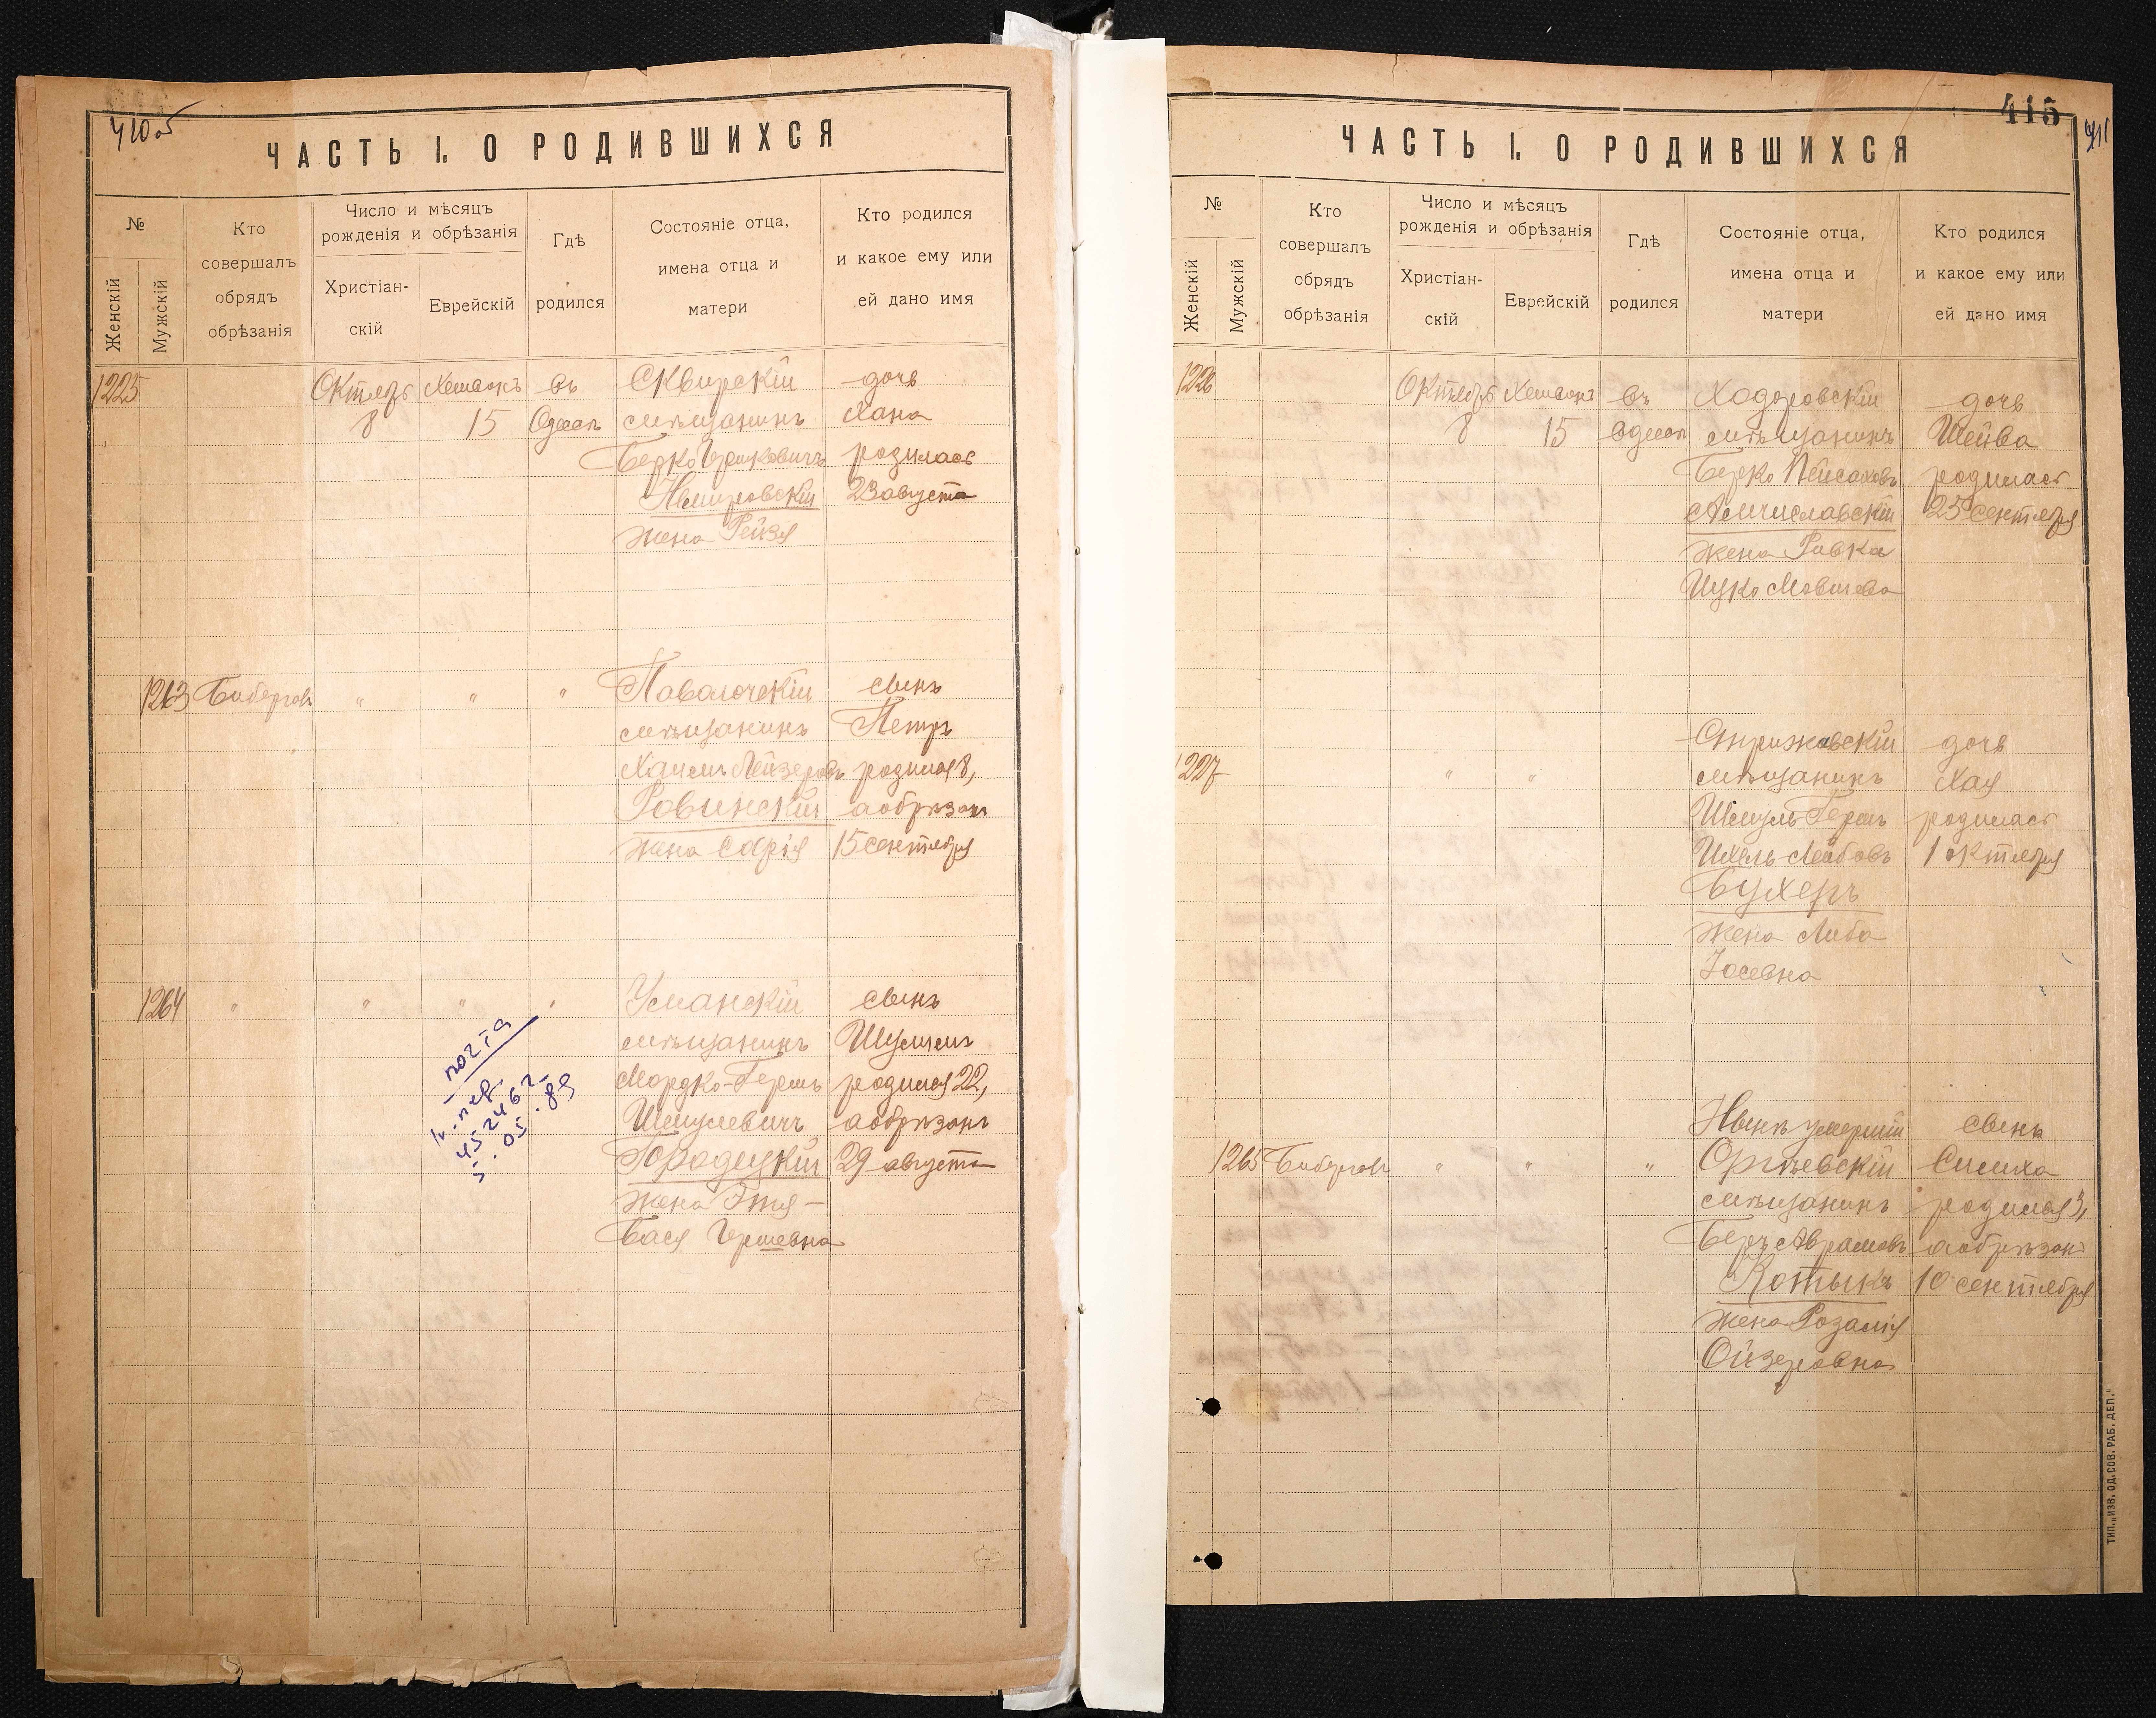 410об
ЧАСТЬ I. О РОДИВШИХСЯ
№
Женскій
Мужскій
Кто
совершалъ
обрядъ
обрѣзанія
Число и мѣсяцъ
рожденія и обрѣзанія
Христіан-
скій
Еврейскій
Гдѣ
родился
Состояніе отца,
имена отца и
матери
Кто родился
и какое ему или
ей дано имя
1225
Октябр
8
15
въ
Одессѣ
Сквирскій
мѣщанинъ
Берко
Немировскій
жена Рейзя
дочь
Хана
родилась
23 августа
1263
Биберговъ
"
"
"
Паволочскій
мѣщанинъ
Хаимъ Лейзеровъ
Ровинскій
жена
сынъ
Петръ
родился 8,
а обрѣзанъ
15 сентября
1264
"
"
"
"
Уманскій
мѣщанинъ
Мордко-Гершъ
Шмулевичъ
Городецкій
жена Этя-
Бася Гершевна
сынъ
Шулимъ
родился 22,
а обрѣзанъ
29 августа
почта
452462
5.05.89
415
411
ЧАСТЬ I. О РОДИВШИХСЯ
№
Женскій
Мужскій
Кто
совершалъ
обрядъ
обрѣзанія
Число и мѣсяцъ
рожденія и обрѣзанія
Христіан-
скій
Еврейскій
Гдѣ
родился
Состояніе отца,
имена отца и
матери
Кто родился
и какое ему или
ей дано имя
1226
Октябрь
8
15
въ
Одессѣ
Ходоровскій
мѣщанинъ
Берко Пейсаховъ
Мечиславскій
жена Ривка
Ицко Мовшева
дочь
Шейва
родилась
25 сентября
1227
"
"
Стрижавскій
мѣщанинъ
Шмуль Гершъ
Ихель-Лейбовъ
Бухеръ
жена Либа
Іосевна
дочь
Хая
родилась
1 октября
1265
Биберговъ
"
"
"
Нынѣ умершій
Оргѣевскій
мѣщанинъ
Беръ Аврамовъ
Котыкъ
жена Розалія
Ойзеровна
сынъ
Симха
родился 3,
а обрѣзанъ
10 сентября
ТИП. „ИЗВ. ОД. СОВ. РАБ. ДЕП."